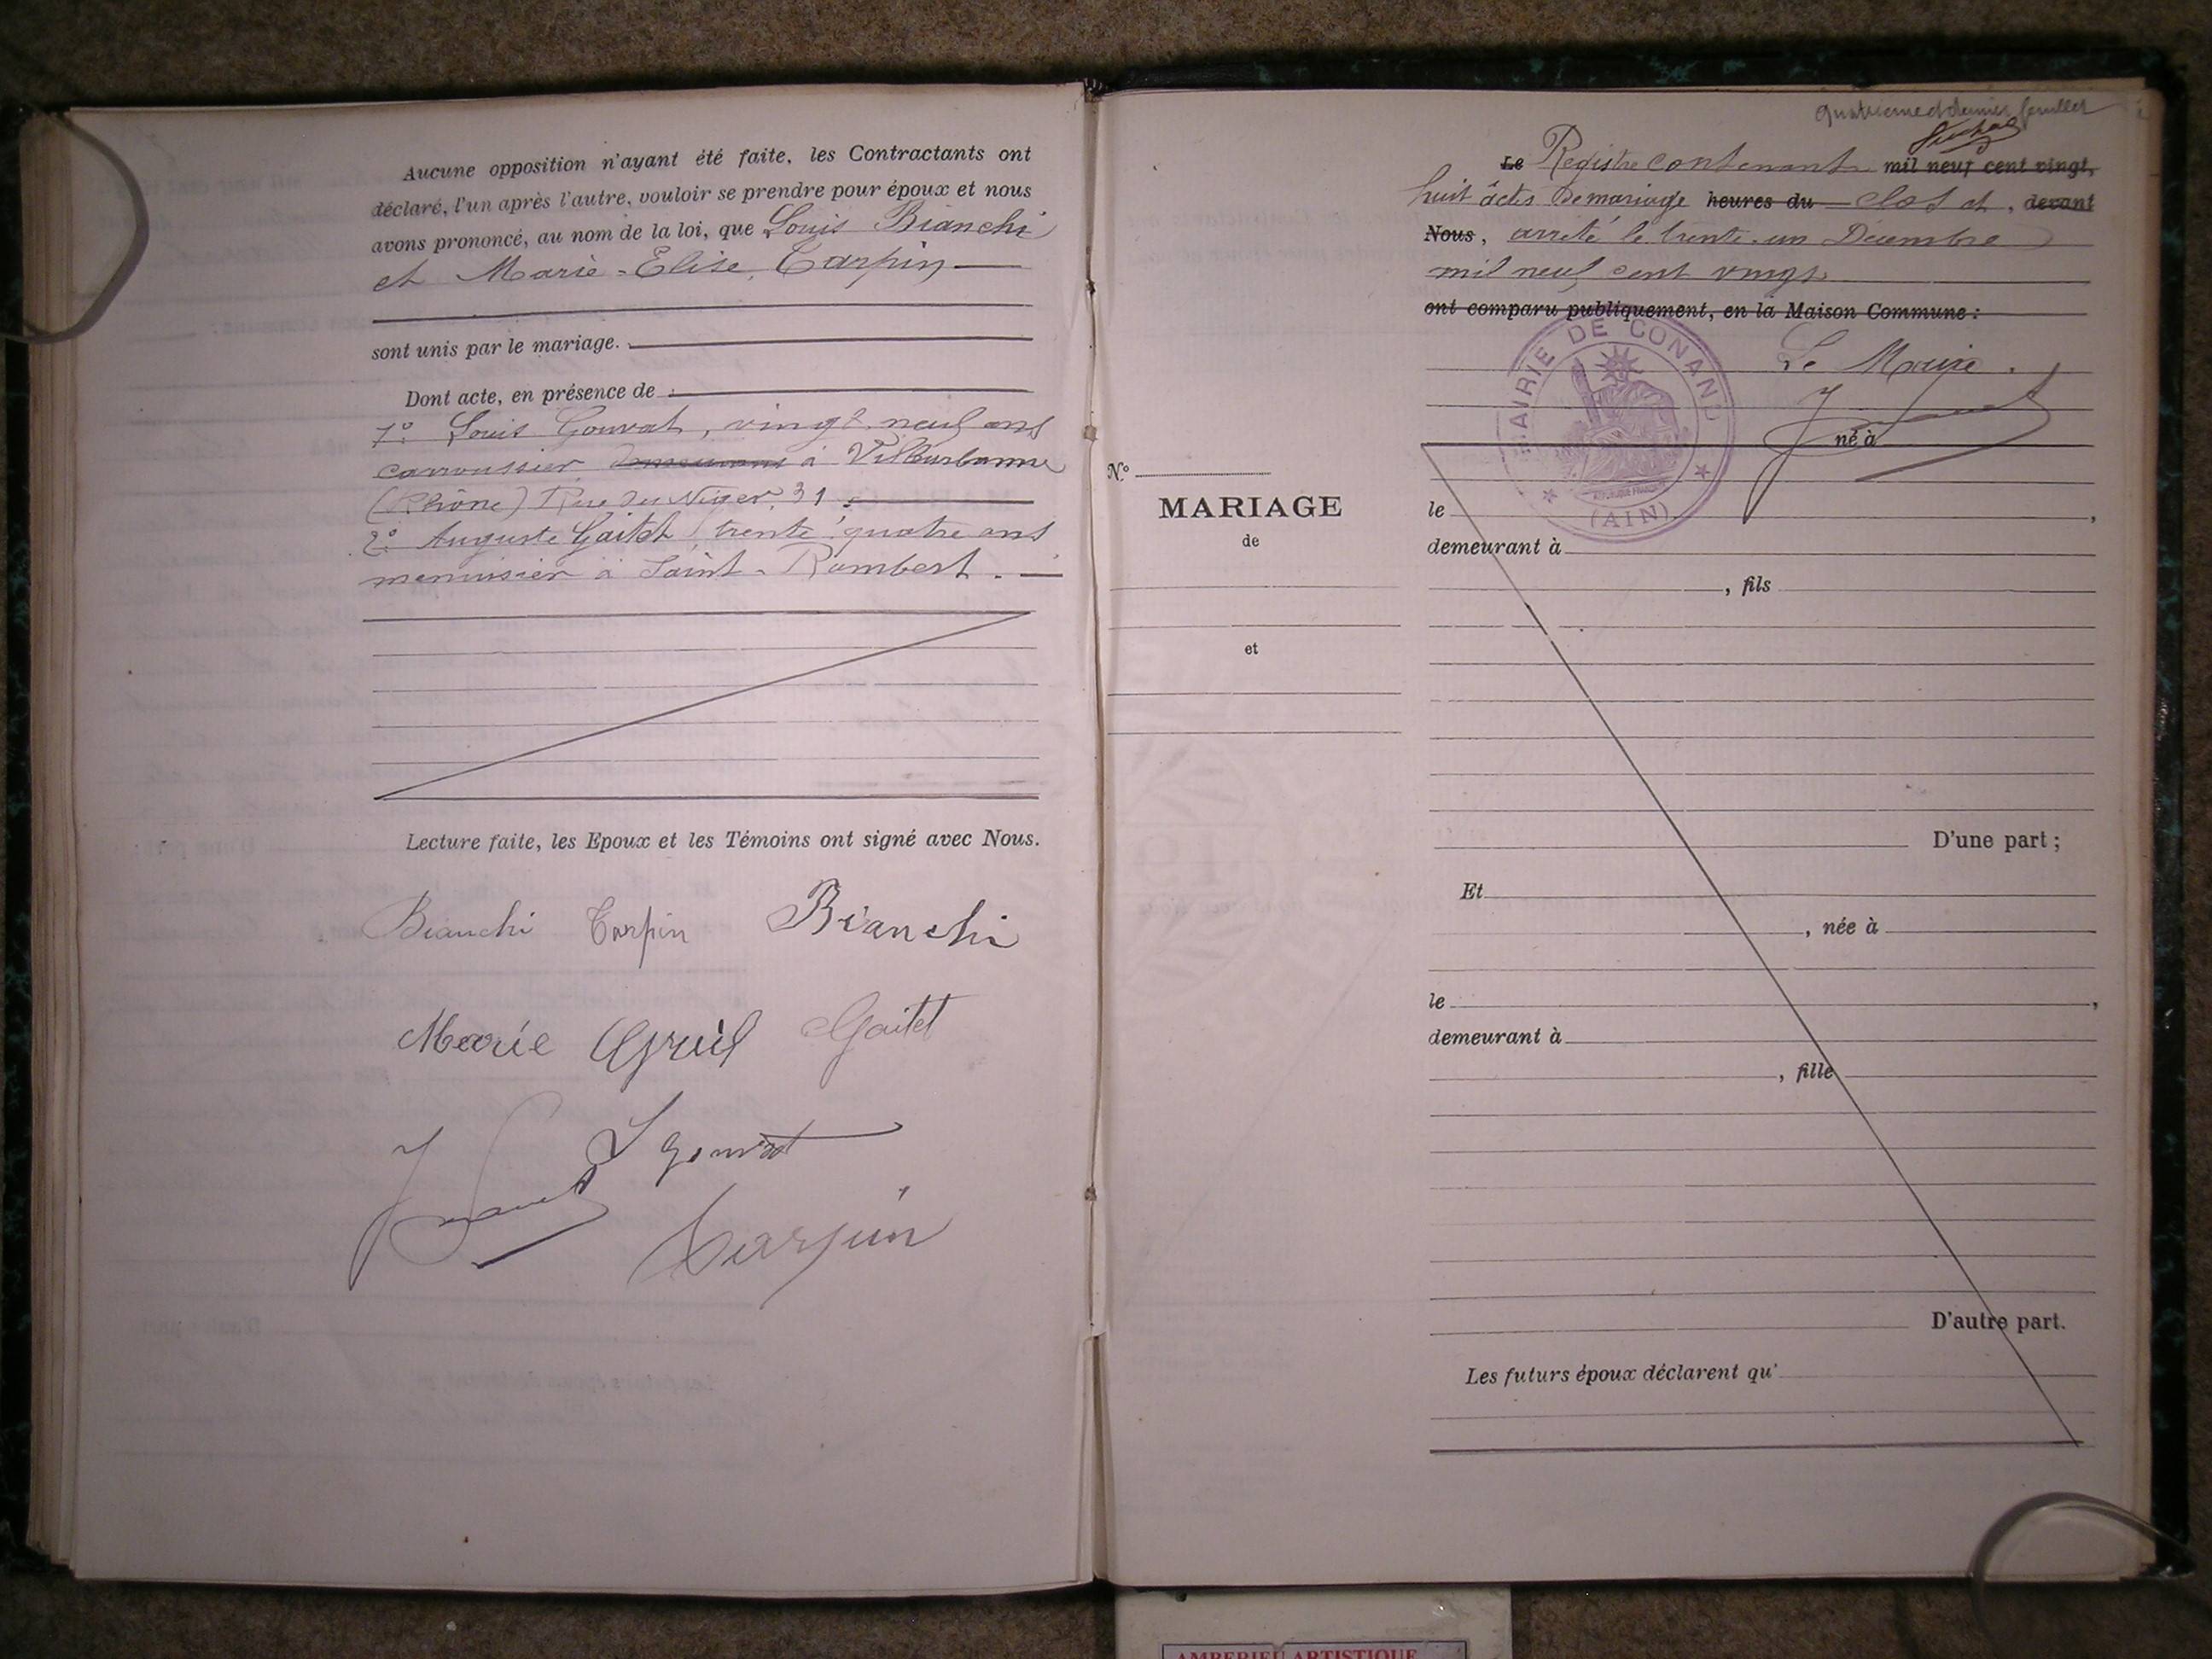 Aucune opposition n'ayant été faite, les Contractants ont
déclaré, l'un après l'autre, vouloir se prendre pour époux et nous
avons prononcé, au nom de la loi, que Louis Bianchi
et Marie-Elise Carpin
sont unis par le mariage.
Dont acte, en présence de :
1º Louis Gouvat, vingt neuf ans
carroussier demeurant à Villeurbanne
(Rhône) Rue du Niger, 31.
2º Auguste Gaitet trente quatre ans
menuisier à Saint-Rambert.
Lecture faite, les Epoux et les Témoins ont signé avec Nous.
Bianchi Carpin Bianchi
Marie Gaitet
L Gouvat
Carpin
quatrième et dernier feuillet
Le Registre contenant mil neuf cent vingt,
huit actes de mariage heures du clos et, devant
Nous, arrêté le trente-un Décembre
mil neuf cent vingt
ont comparu publiquement, en la Maison Commune :
Le Maire.
MAIRIE DE CONAND
(AIN)
né à
Nº
MARIAGE
de
et
le ,
demeurant à
, fils
D'une part ;
Et
, née à
le ,
demeurant à
, fille
D'autre part.
Les futurs époux déclarent qu'
AMBERIEU ARTISTIQUE